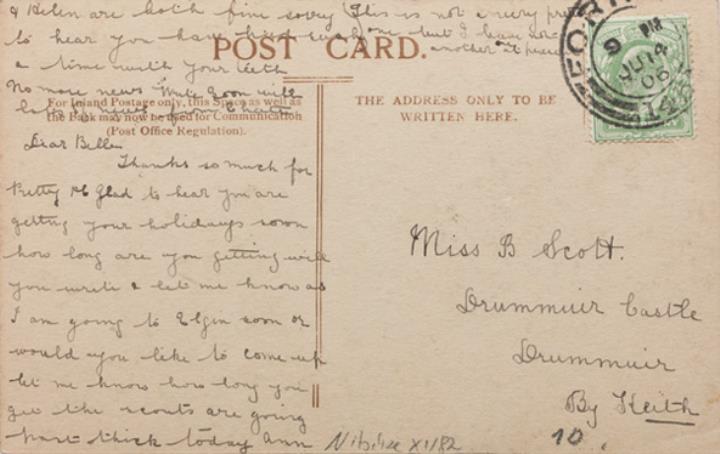 & Helen are both fine sorry This is not a very
to hear you have had such one but I have not
a time with your teeth another at present
No more news Write soon with
love
POST CARD.
For Inland Postage only, this Space as well as
the Back may now be used for Communication
(Post Office Regulation).
THE ADDRESS ONLY TO BE
WRITTEN HERE.
9 PM
JU 14
06
Dear Bella
Thanks so much for
Pretty PC Glad to hear you are
getting your holidays soon
how long are you getting will
you write & let me know as
I am going to Elgin soon or
would you like to come up
let me know how long you
get the scouts are going
past thick today Ann
Miss B Scott.
Drummuir Castle
Drummuir
By Keith
10.